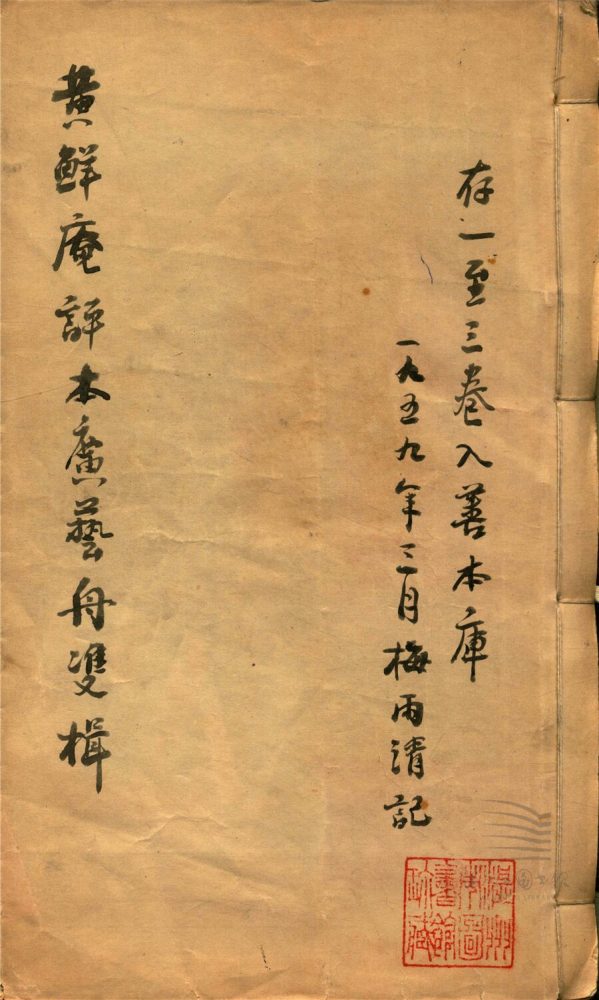 存一至三卷入善本庫
一九五九年三月梅雨清記
黃鮮庵評本廣藝舟雙楫
溫州市圖書館珍藏